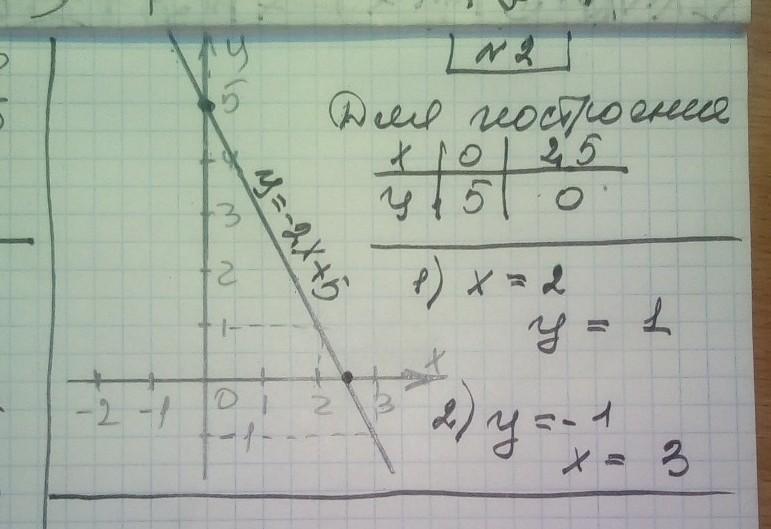 №2
y
5
Для построения
4
x | 0 | 2,5
y | 5 | 0
3
y=-2x+5
2
1) x = 2
y = 1
1
x
-2 -1 0 1 2 3
2) y = -1
-1
x = 3